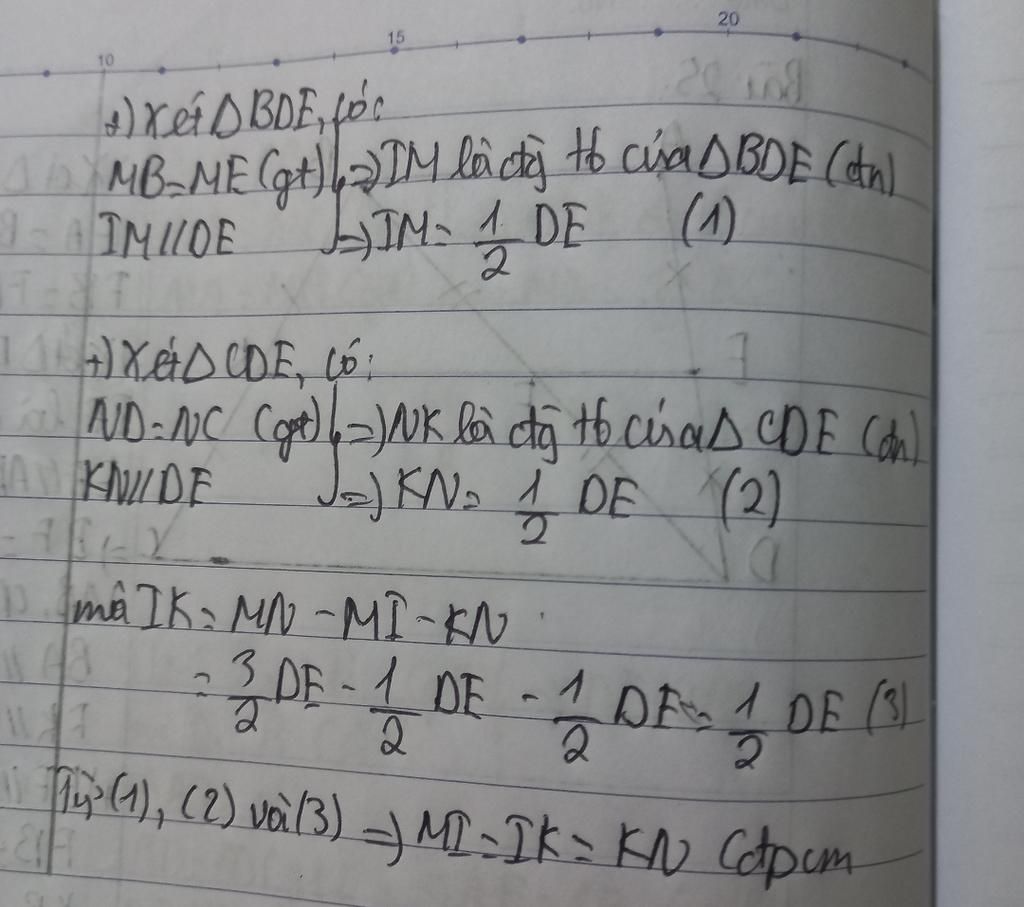 10 15 20
+) Xét △BDE, có:
MB=ME (gt) } => IM là đg tb của △BDE (đn)
IM//DE => IM = 1/2 DE (1)
+) Xét △CDE, có:
ND=NC (gt) } => NK là đg tb của △CDE (đn)
KN//DE => KN = 1/2 DE (2)
mà IK = MN - MI - KN
= 3/2 DE - 1/2 DE - 1/2 DE = 1/2 DE (3)
Từ (1), (2) và (3) => MI = IK = KN (đpcm